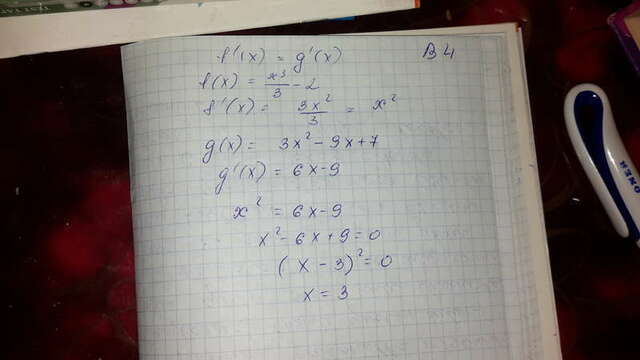 f'(x) = g'(x)
B4
f(x) = x³/3 - 2
f'(x) = 3x²/3 = x²
g(x) = 3x² - 9x + 7
g'(x) = 6x - 9
x² = 6x - 9
x² - 6x + 9 = 0
(x - 3)² = 0
x = 3